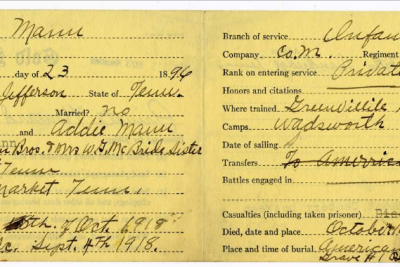 Mann
day of 23 1896
Jefferson State of Tenn.
Married? no
and Addie Mann
Bros. & Mrs W.G. McBride Sister
Tenn
Market Tenn.
of Oct. 1918
Sept. 4th 1918.
Branch of service Infan
Company Co. M. Regiment
Rank on entering service Privat
Honors and citations
Where trained Greenville
Camps Wadsworth
Date of sailing
Transfers To America
Battles engaged in
Casualties (including taken prisoner)
Died, date and place October
Place and time of burial American
Grave #1